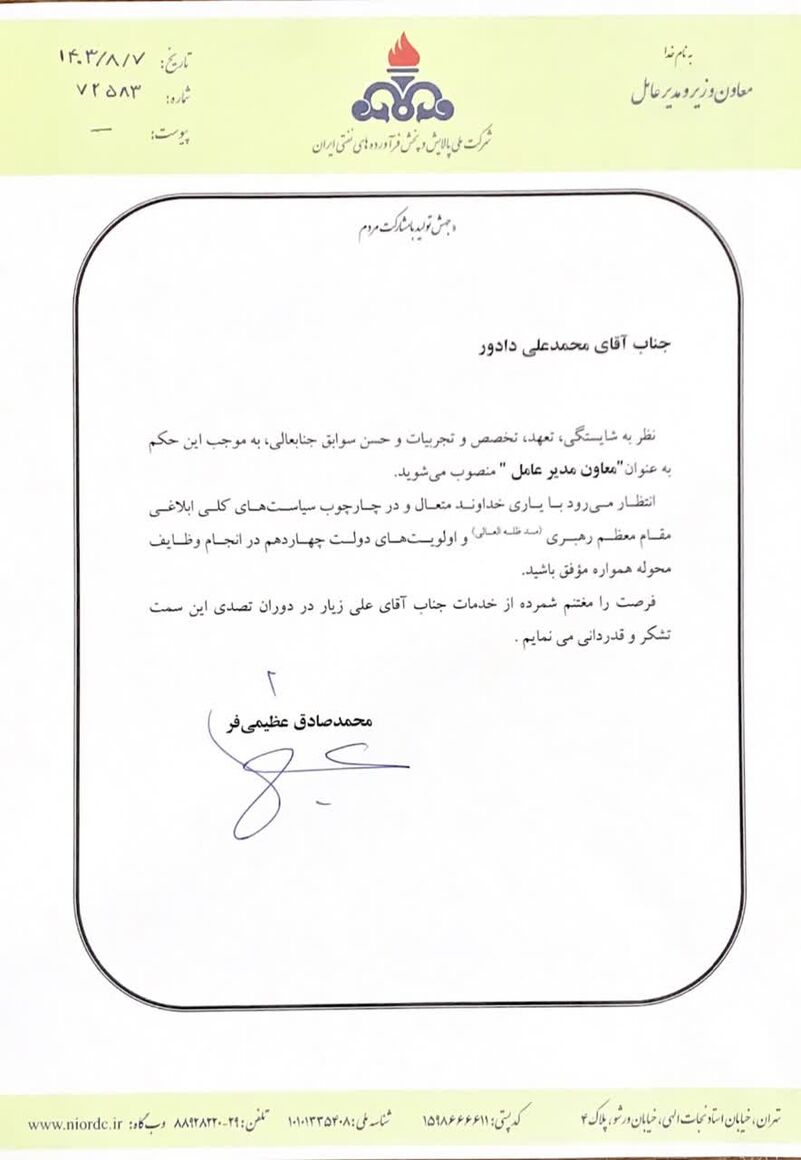 به نام خدا
معاون وزیر و مدیر عامل
شرکت ملی پالایش و پخش فرآورده های نفتی ایران
تاریخ: ۱۴۰۳/۸/۷
شماره: ۷۲۵۸۳
پیوست: —
«جهش تولید با مشارکت مردم
جناب آقای محمدعلی دادور
نظر به شایستگی، تعهد، تخصص و تجربیات و حسن سوابق جنابعالی، به موجب این حکم
به عنوان"معاون مدیر عامل " منصوب می‌شوید.
انتظار می‌رود با یاری خداوند متعال و در چارچوب سیاست‌های کلی ابلاغی
مقام معظم رهبری (مد ظله العالی) و اولویت‌های دولت چهاردهم در انجام وظایف
محوله همواره مؤفق باشید.
فرصت را مغتنم شمرده از خدمات جناب آقای علی زیار در دوران تصدی این سمت
تشکر و قدردانی می نمایم .
محمدصادق عظیمی‌فر
تهران، خیابان استاد نجات الهی، خیابان ورشو، پلاک ۴ کد پستی: ۱۵۹۸۶۶۶۶۱۱ شناسه ملی: ۱۰۱۰۱۳۳۵۴۰۸ تلفن: ۲۹-۸۸۹۲۸۲۲۰ وب گاه: www.niordc.ir